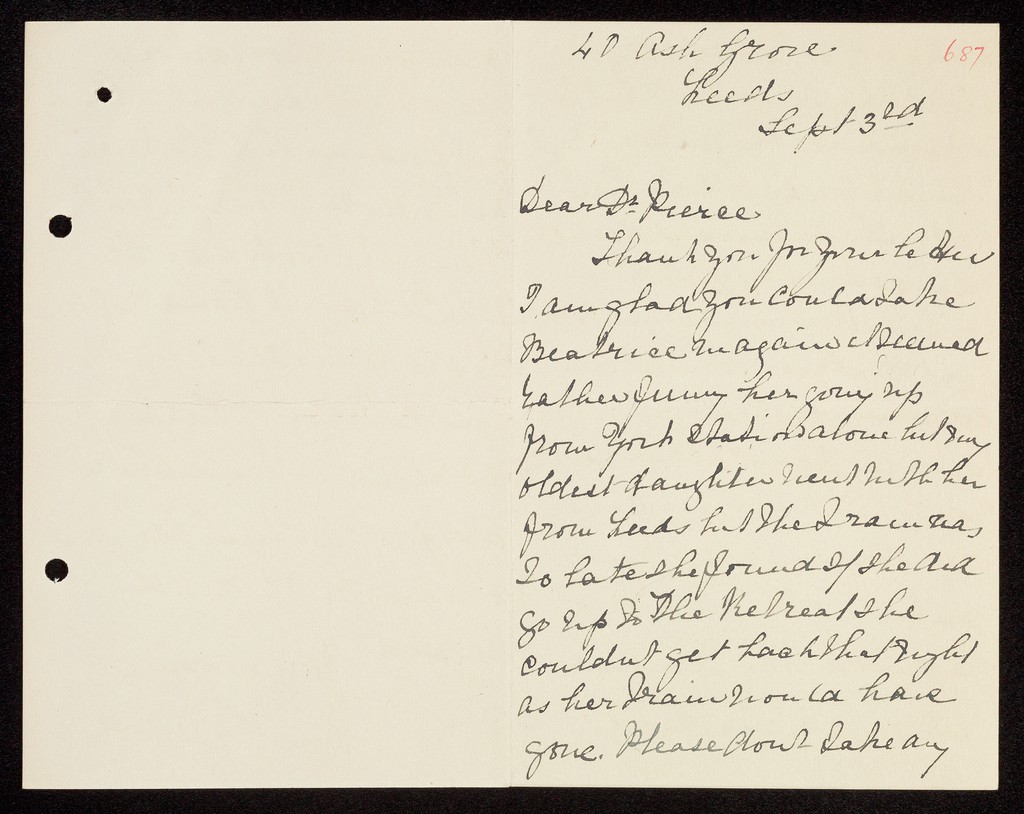 687
40 Ash Grove
Leeds
Sept 3rd
Dear Dr Pierce
Thank you for your letter
I am glad you could take
Beatrice in again it seemed
rather funny her going up
from York Station alone but my
oldest daughter went with her
from Leeds but the train was
so late she found if she did
go up to the Retreat she
couldnt get back that night
as her train would have
gone. Please dont take any